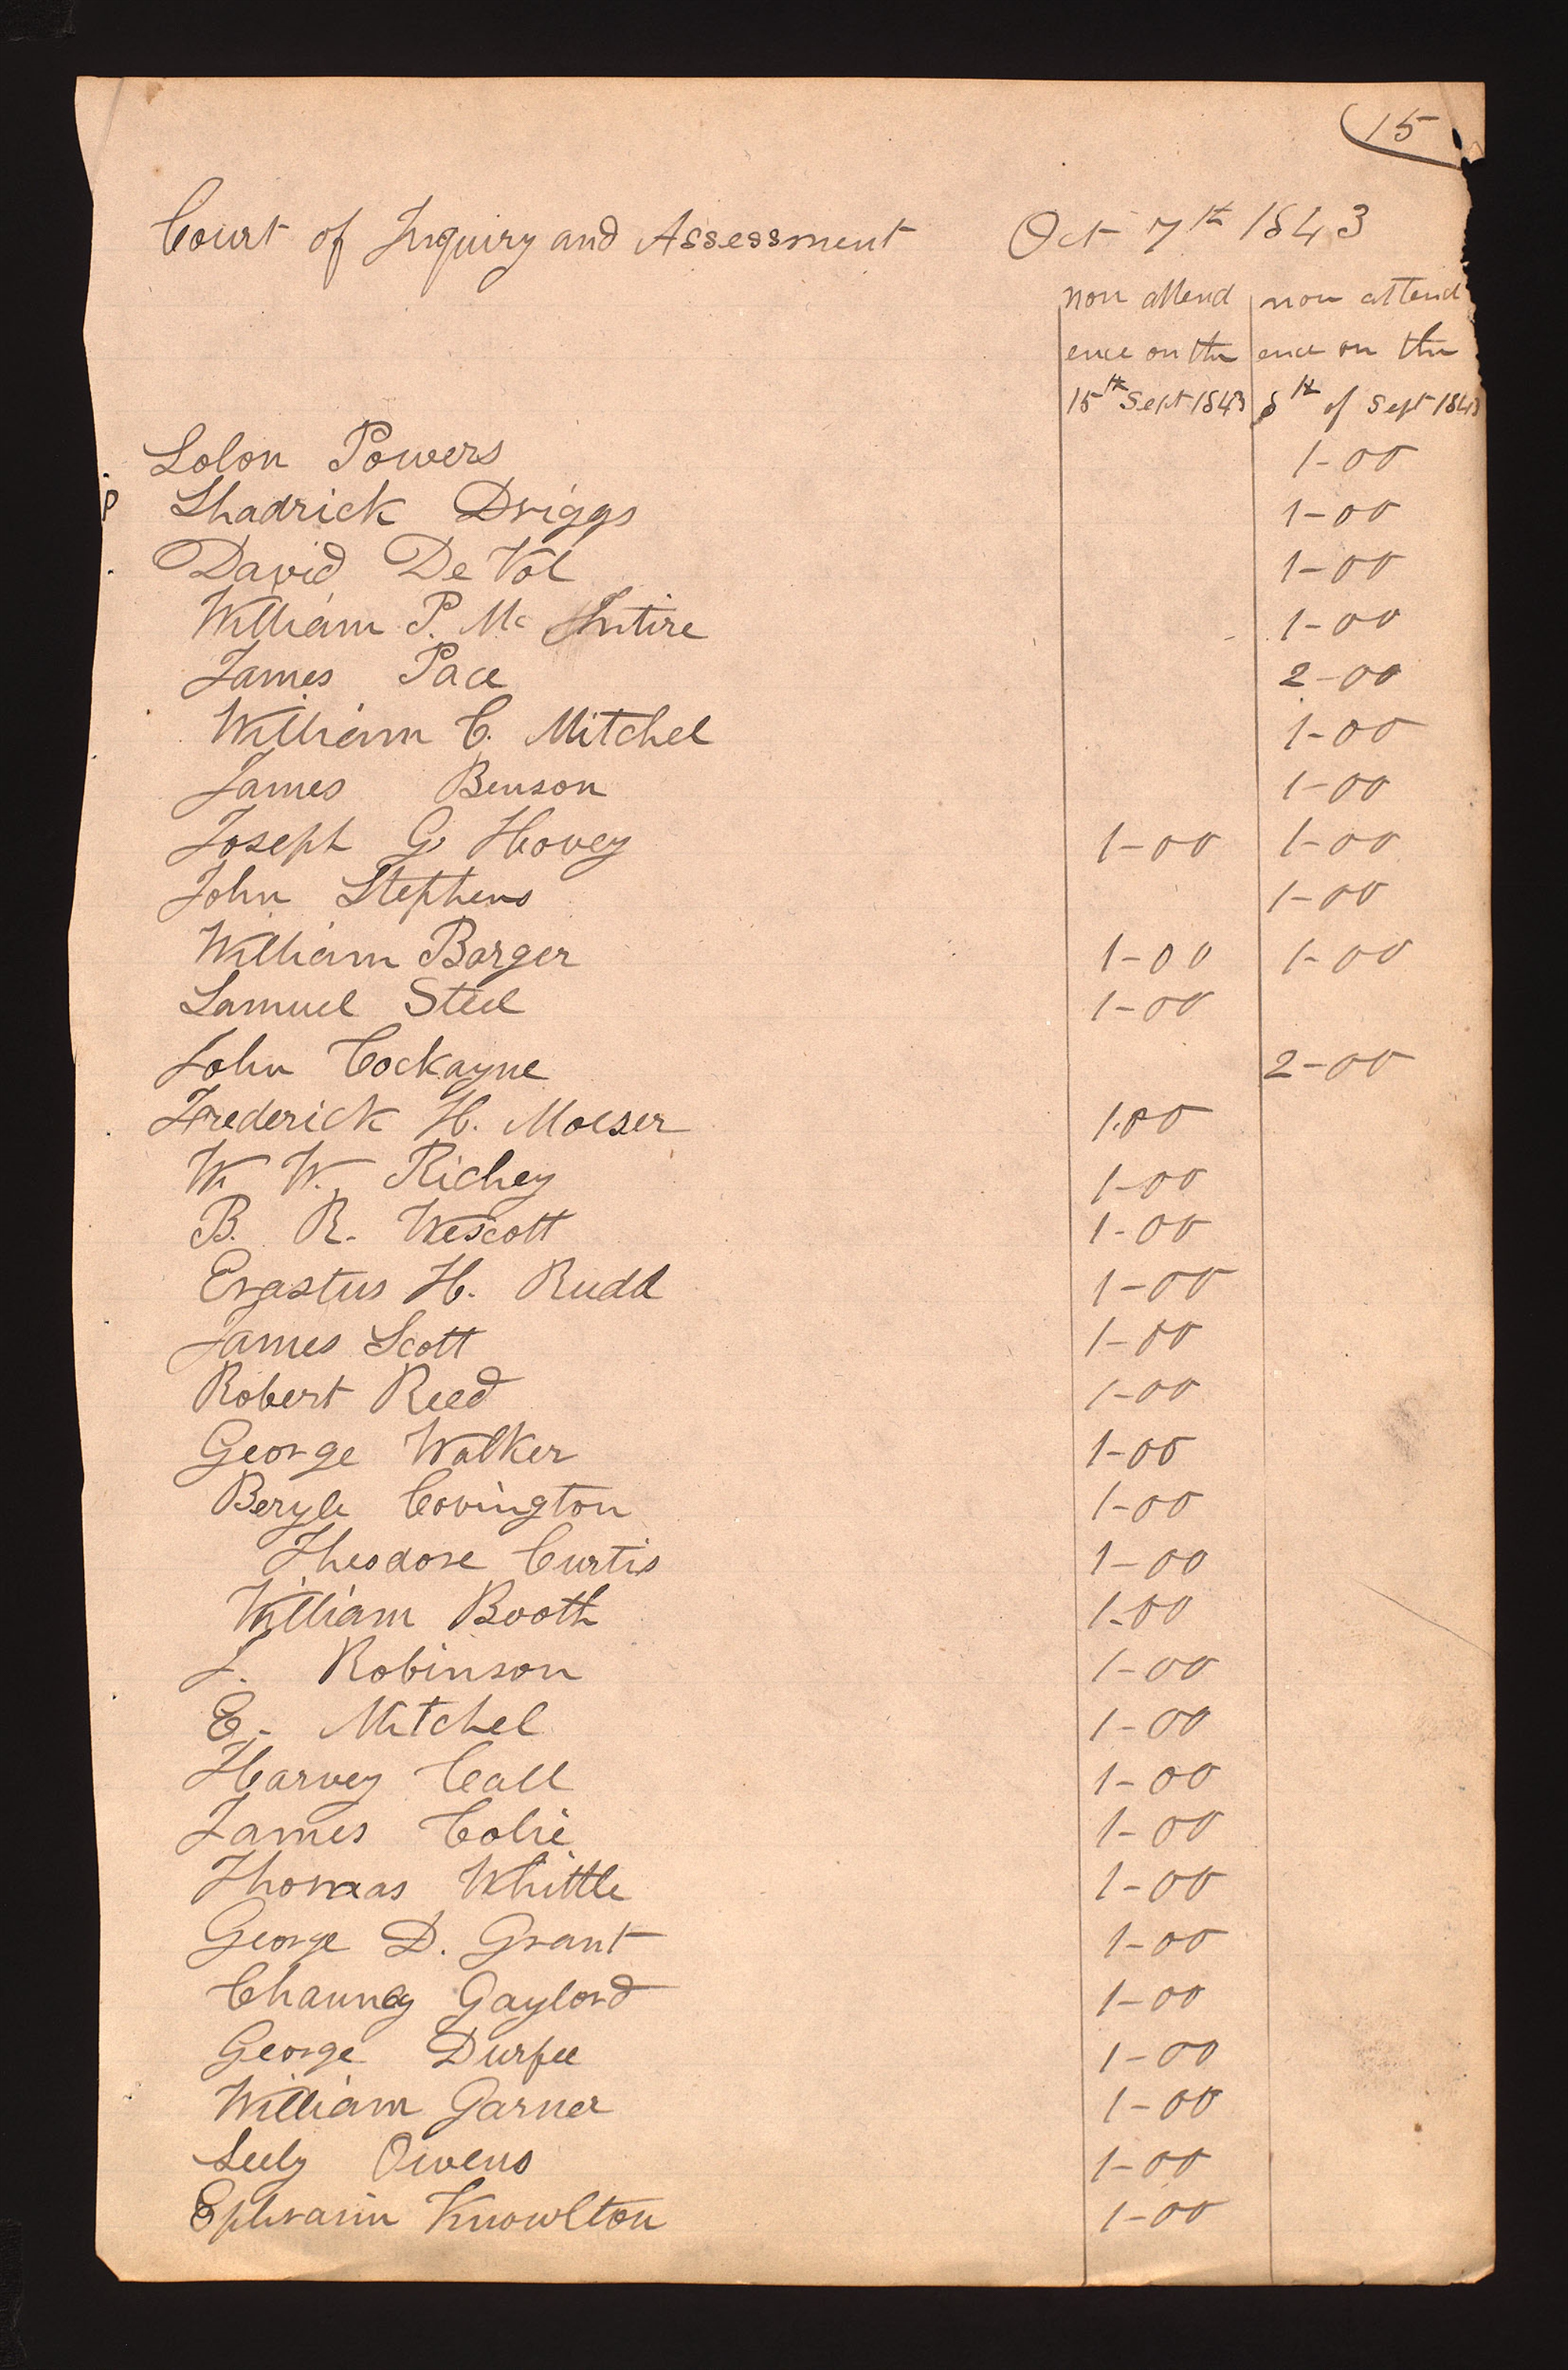 15
Court of Inquiry and Assessment Oct 7th 1843
non attend non attend
ence on the ence on the
15th Sept 1843 8th of Sept 1843
Solon Powers 1-00
P Shadrick Driggs 1-00
David De Vol 1-00
William P. Mc Intire 1-00
James Pace 2-00
William C. Mitchel 1-00
James Benson 1-00
Joseph G Hovey 1-00 1-00
John Stephens 1-00
William Barger 1-00 1-00
Samuel Steel 1-00
John Cockayne 2-00
Frederick H. Moeser 1.00
W W. Richey 1-00
B. R. Wescott 1-00
Erastus H. Rudd 1-00
James Scott 1-00
Robert Reed 1-00
George Walker 1-00
Beryle Covington 1-00
Theodore Curtis 1-00
William Booth 1-00
J. Robinson 1-00
E. Mitchel 1-00
Harvey Call 1-00
James Colie 1-00
Thomas Whittle 1-00
George D. Grant 1-00
Chauncy Gaylord 1-00
George Durfee 1-00
William Garner 1-00
Seely Owens 1-00
Ephraim Knowlton 1-00